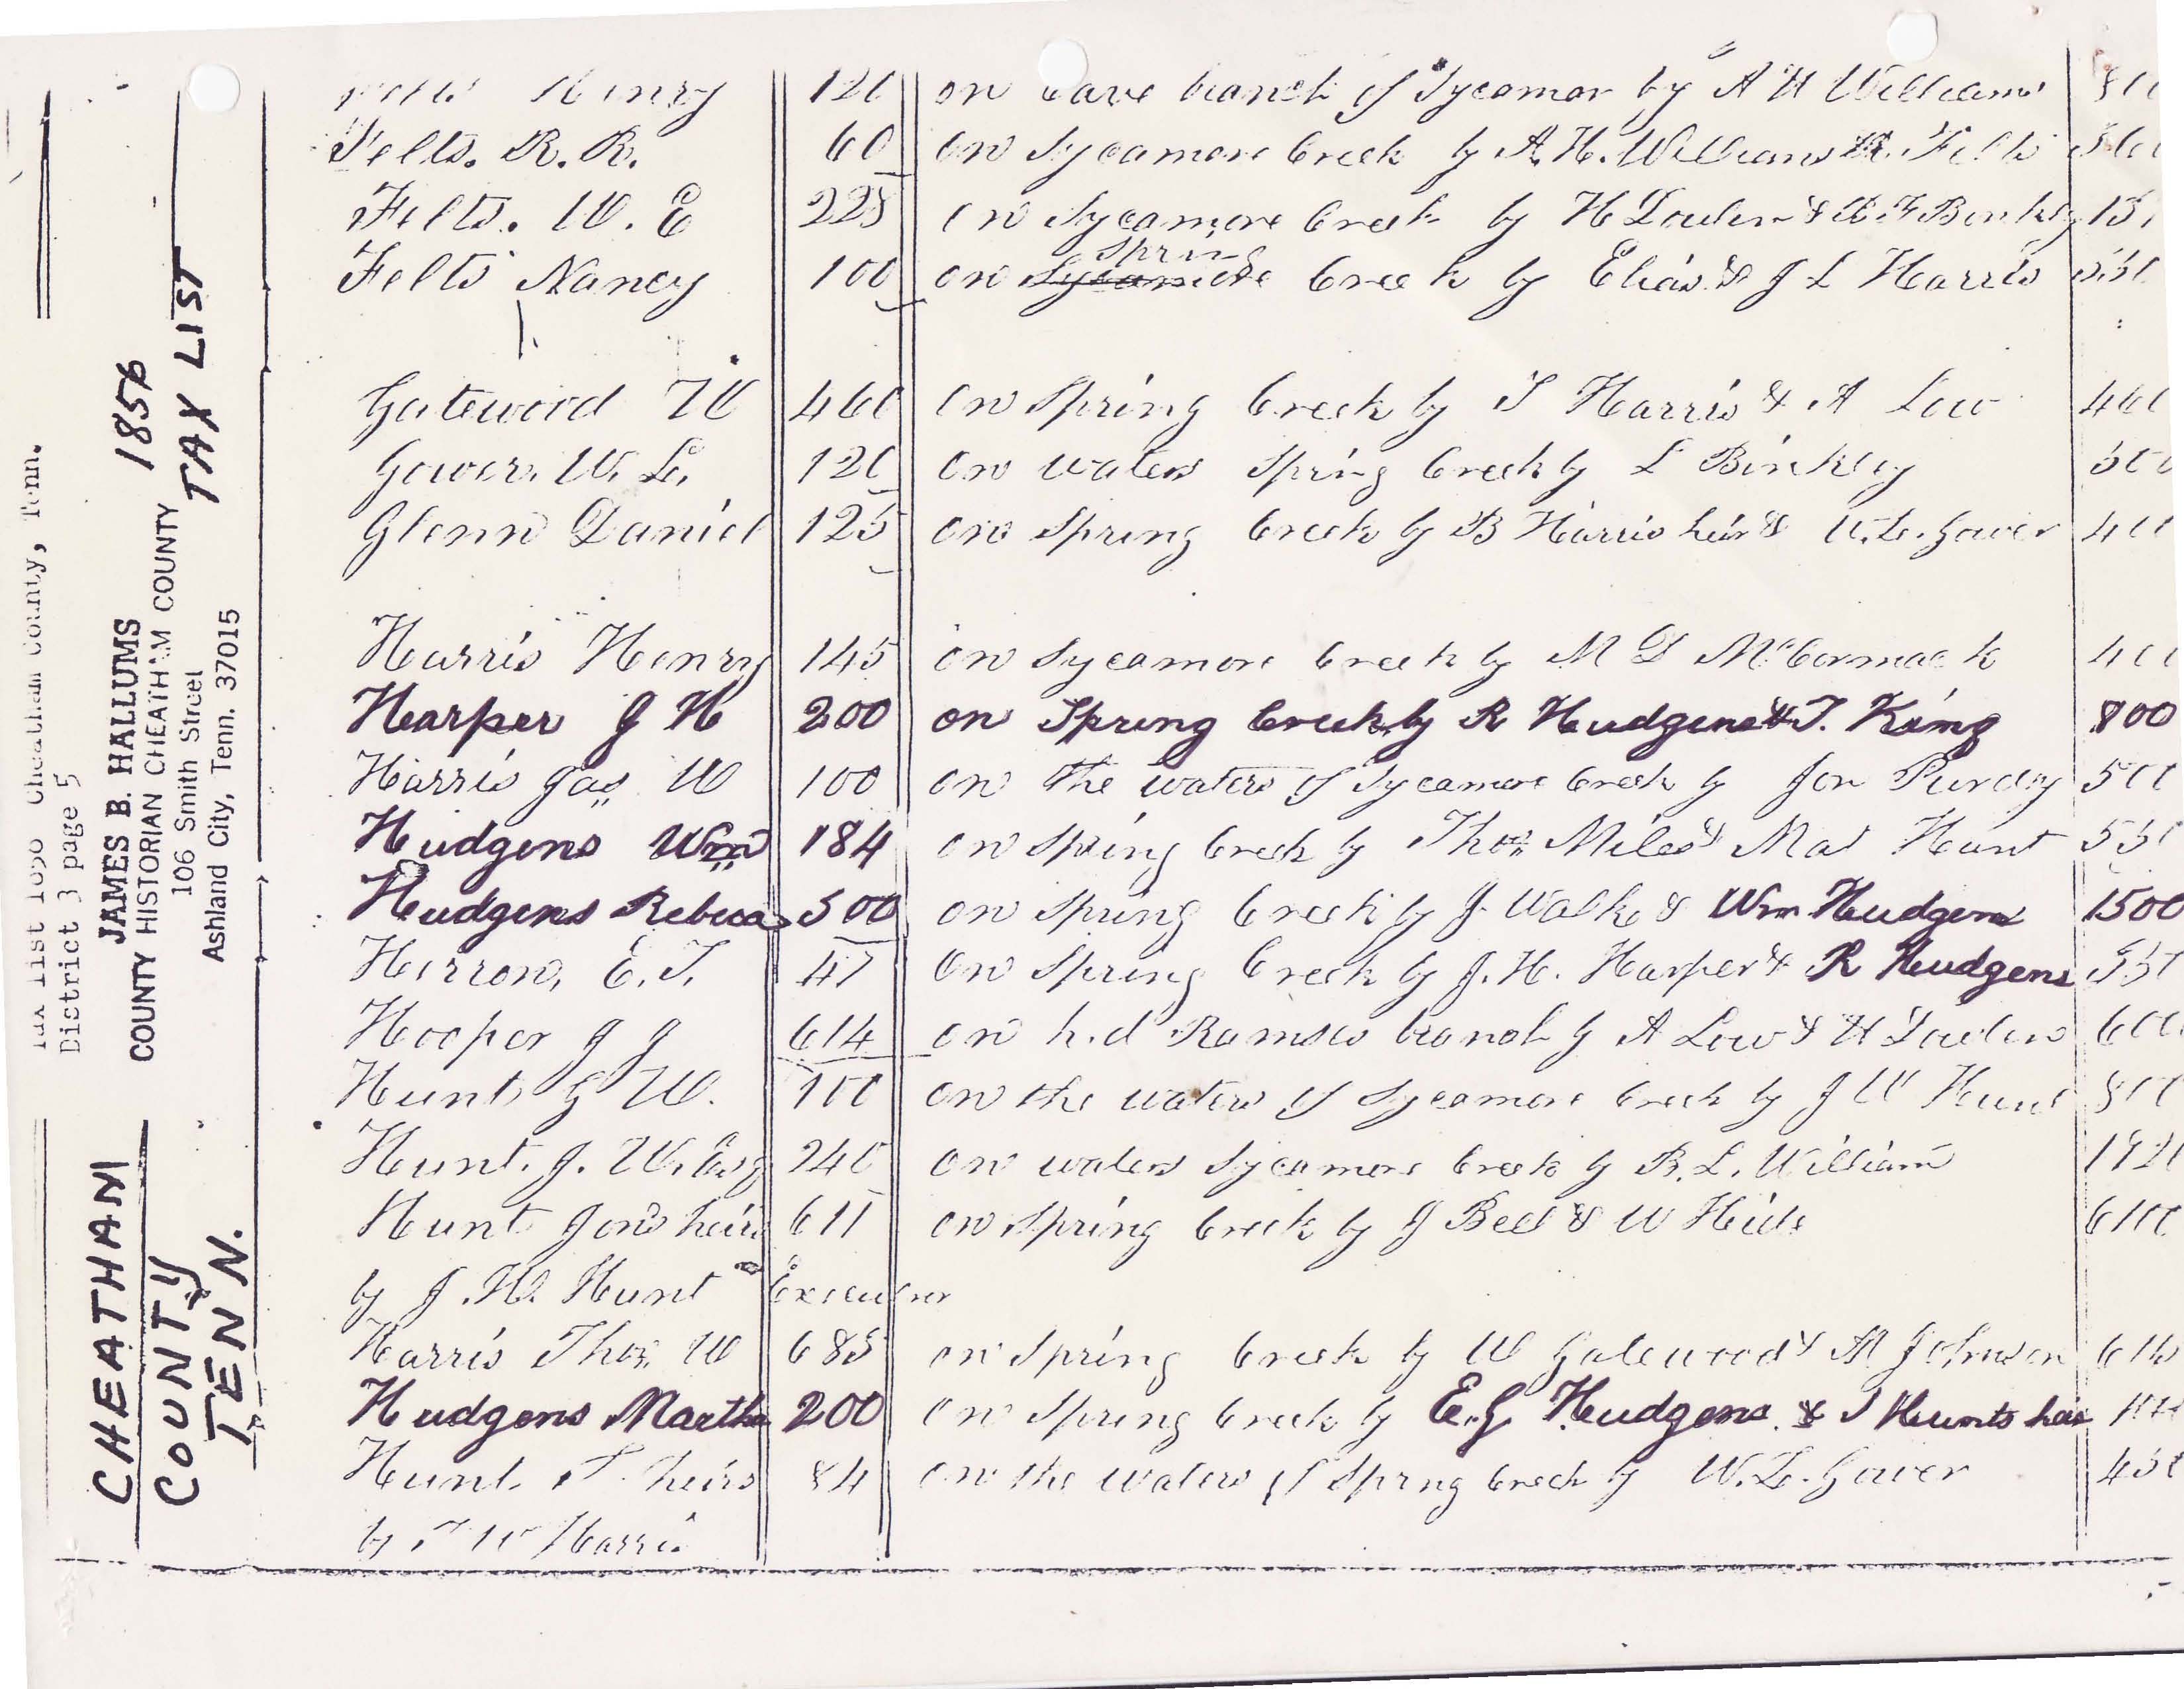 Tax list 1856 Cheatham county, Tenn.
District 3 page 5
JAMES B. HALLUMS
COUNTY HISTORIAN CHEATHAM COUNTY
106 Smith Street
Ashland City, Tenn. 37015
1856
TAX LIST
CHEATHAM
COUNTY
TENN.
Henry 120 on Cave branch of Sycamor by A H Williams
Felts. R. R. 60 on Sycamore Creek by A. H. Williams Felts
Felts. W. E 228 on Sycamore Creek by H & Binkley
Felts Nancy 100 on Spring Creek by Elias & J L Harris
Gatewood W 460 on Spring Creek by T Harris & A Low 460
Gower. W. L. 120 on waters Spring Creek by L Binkley 500
Glenn Daniel 125 on Spring Creek by B Harris heir & W. L. Gower 400
Harris Henry 145 on Sycamore Creek by M D McCormack 400
Harper J H 200 on Spring Creek by R Hudgens & T. King 800
Harris Jas W 100 on the waters of Sycamore Creek by Jon Purdy 500
Hudgens Wm 184 on Spring Creek by Thos Miles & Mat Hunt 550
Hudgens Rebeca 500 on Spring Creek by J Walk & Wm Hudgens 1500
Herron, E. T. 47 on Spring Creek by J. H. Harper & R Hudgens
Hooper J J 614 on branch by A Low & H 600
Hunt G W. 100 on the waters of Sycamore Creek by J W Hunt 800
Hunt. J. W. Esq 240 on waters Sycamore Creek by B. L. William 1920
Hunt Jons heirs 611 on Spring Creek by J Bell & W
by J. W. Hunt Executor
Harris Thos W 685 on Spring Creek by W Gatewood & M Johnson
Hudgens Martha 200 on Spring Creek by E. G Hudgens. & J Hunts heir
Hunt. T. heirs 84 on the waters of Spring Creek by W. L. Gower 450
by T W Harris